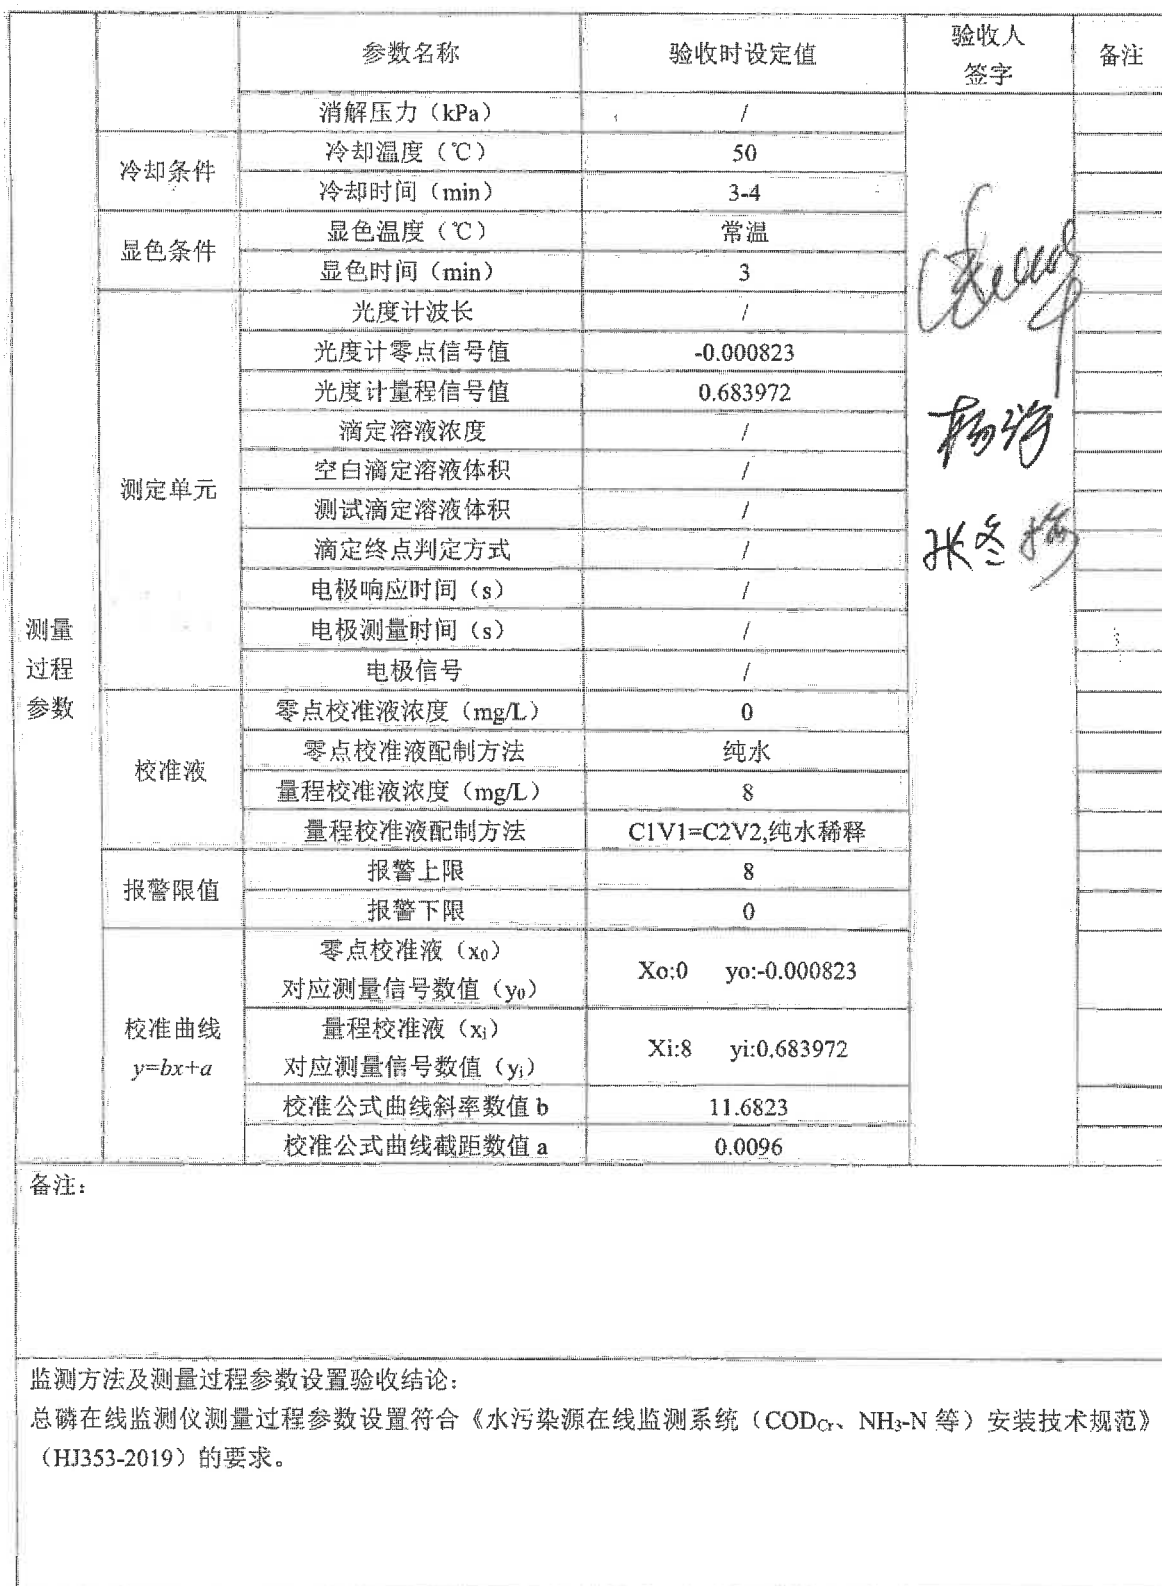 参数名称 验收时设定值 验收人 备注
签字
消解压力（kPa） /
冷却条件 冷却温度（℃） 50
冷却时间（min） 3-4
显色条件 显色温度（℃） 常温
显色时间（min） 3
测定单元 光度计波长 /
光度计零点信号值 -0.000823
光度计量程信号值 0.683972
滴定溶液浓度 /
空白滴定溶液体积 /
测试滴定溶液体积 /
滴定终点判定方式 /
电极响应时间（s） /
电极测量时间（s） /
电极信号 /
测量
过程
参数
校准液 零点校准液浓度（mg/L） 0
零点校准液配制方法 纯水
量程校准液浓度（mg/L） 8
量程校准液配制方法 C1V1=C2V2,纯水稀释
报警限值 报警上限 8
报警下限 0
校准曲线
y=bx+a
零点校准液（x₀）
对应测量信号数值（y₀） Xo:0 yo:-0.000823
量程校准液（xᵢ）
对应测量信号数值（yᵢ） Xi:8 yi:0.683972
校准公式曲线斜率数值 b 11.6823
校准公式曲线截距数值 a 0.0096
张冬梅
备注：
监测方法及测量过程参数设置验收结论：
总磷在线监测仪测量过程参数设置符合《水污染源在线监测系统（CODCr、NH₃-N 等）安装技术规范》
（HJ353-2019）的要求。